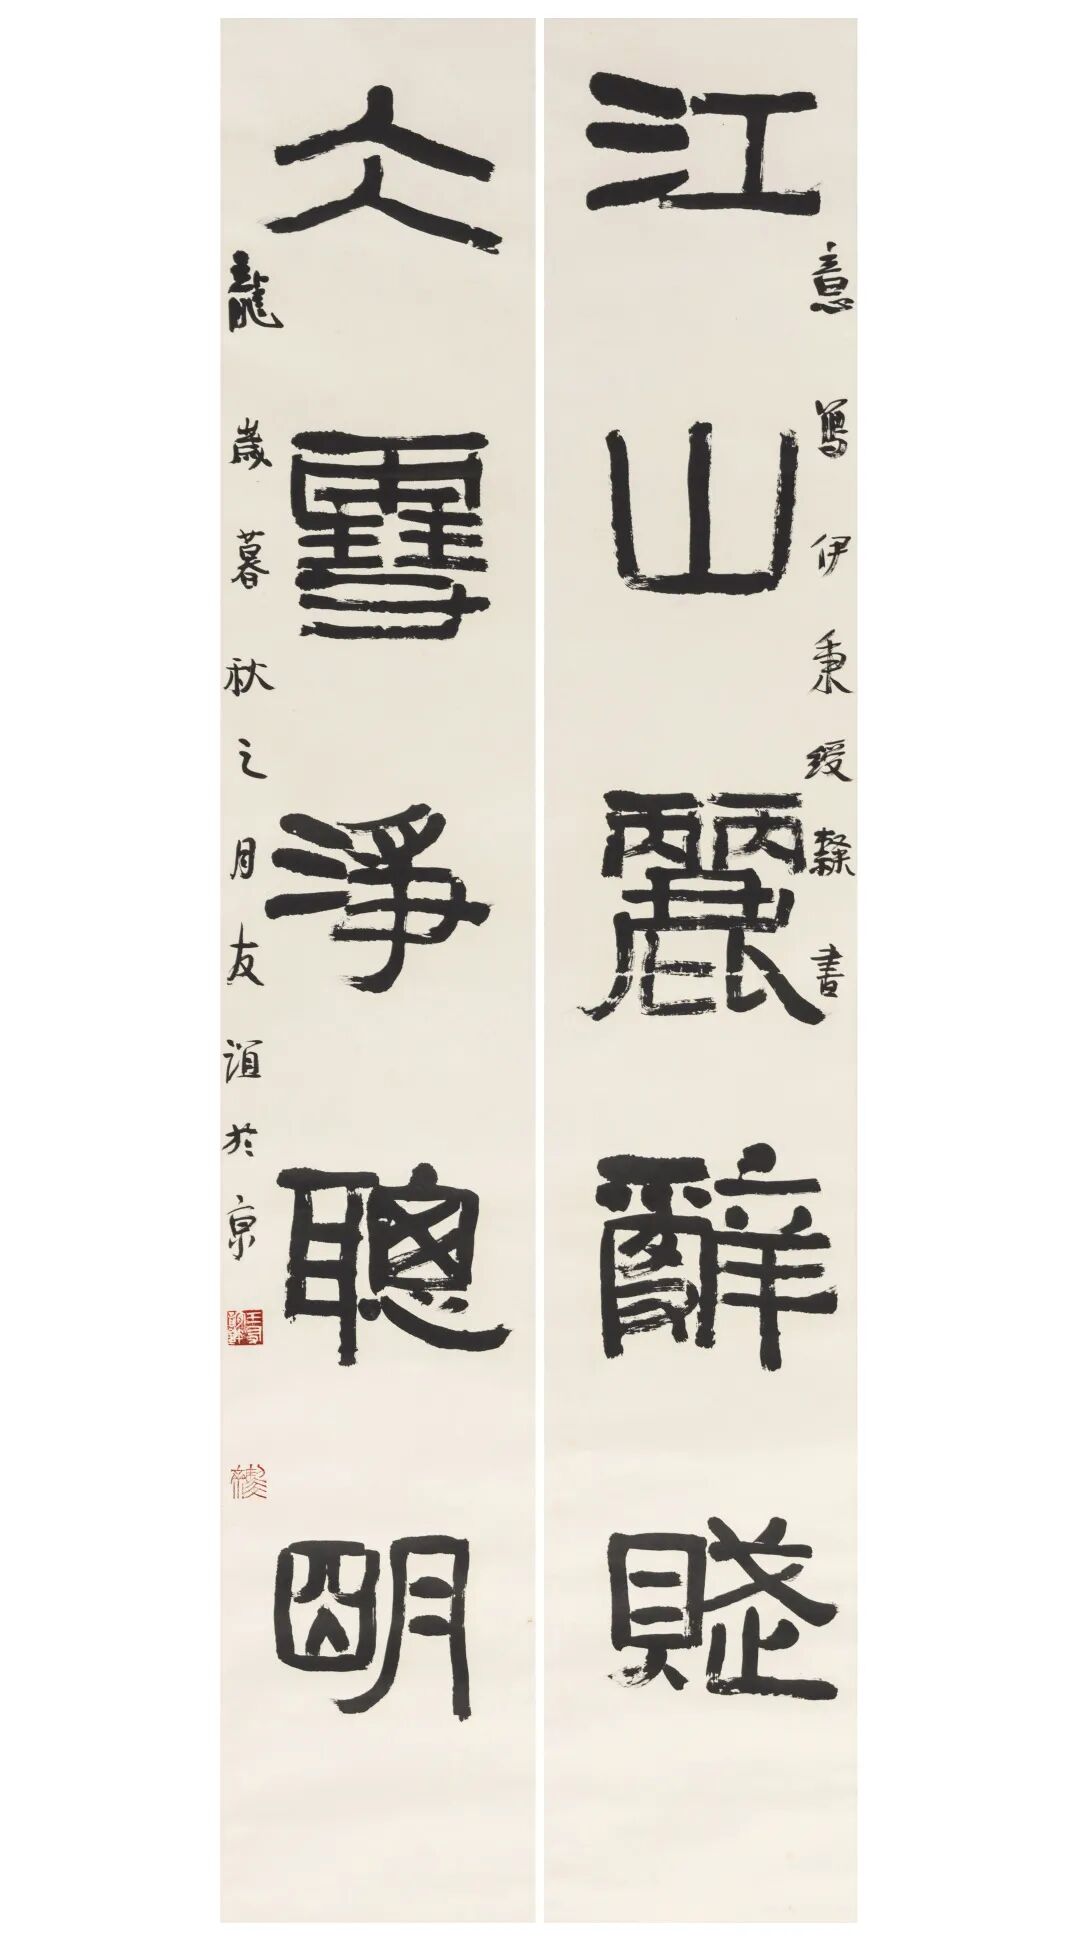 江山麗辭賦
意寫伊秉綬隸書
仌雪淨聰朙
龍歲暮秋之月友誼於京